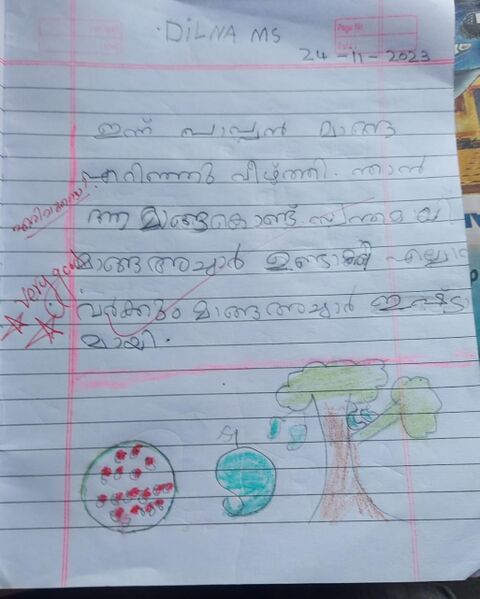 DILNA MS
Page No
24-11-2023
ഇന്ന് പാപ്പൻ മാങ്ങ
എറിഞ്ഞു വീഴ്ത്തി. ഞാൻ
ആ മാങ്ങകൊണ്ട് സ്വന്തമായി
മാങ്ങ അച്ചാർ ഉണ്ടാക്കി എല്ലാ
വർക്കും മാങ്ങ അച്ചാർ ഇഷ്ട
മായി.
very good